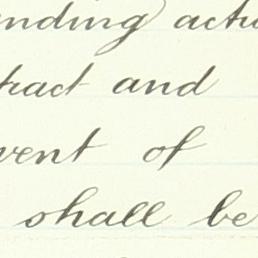 nding actu
tract and
vent of
shall be